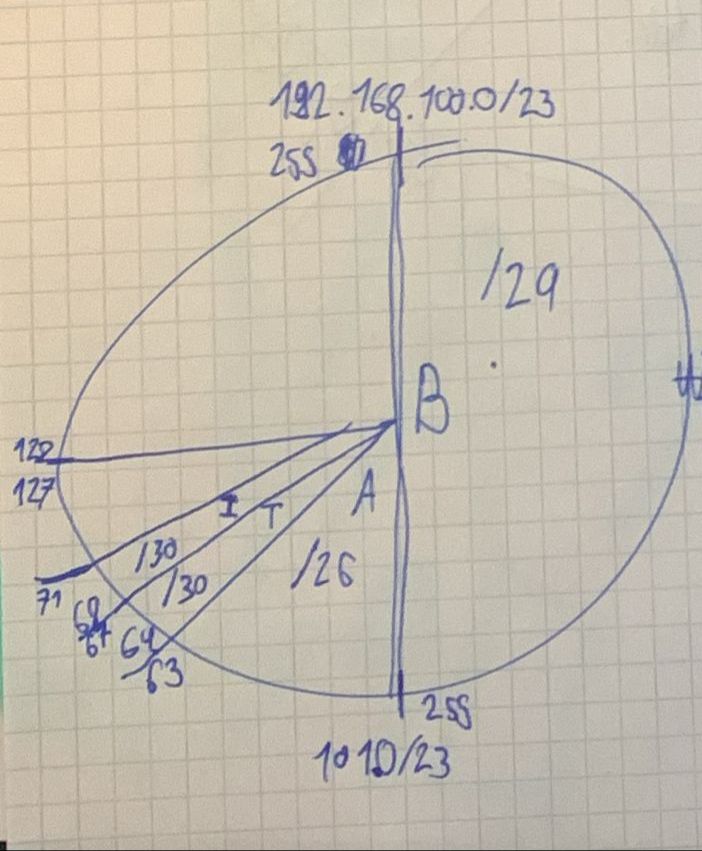 192.168.100.0/23
255
/29
B
128
127
A
I
T
/30
/30
/26
71
68
67
64
63
255
101.0/23